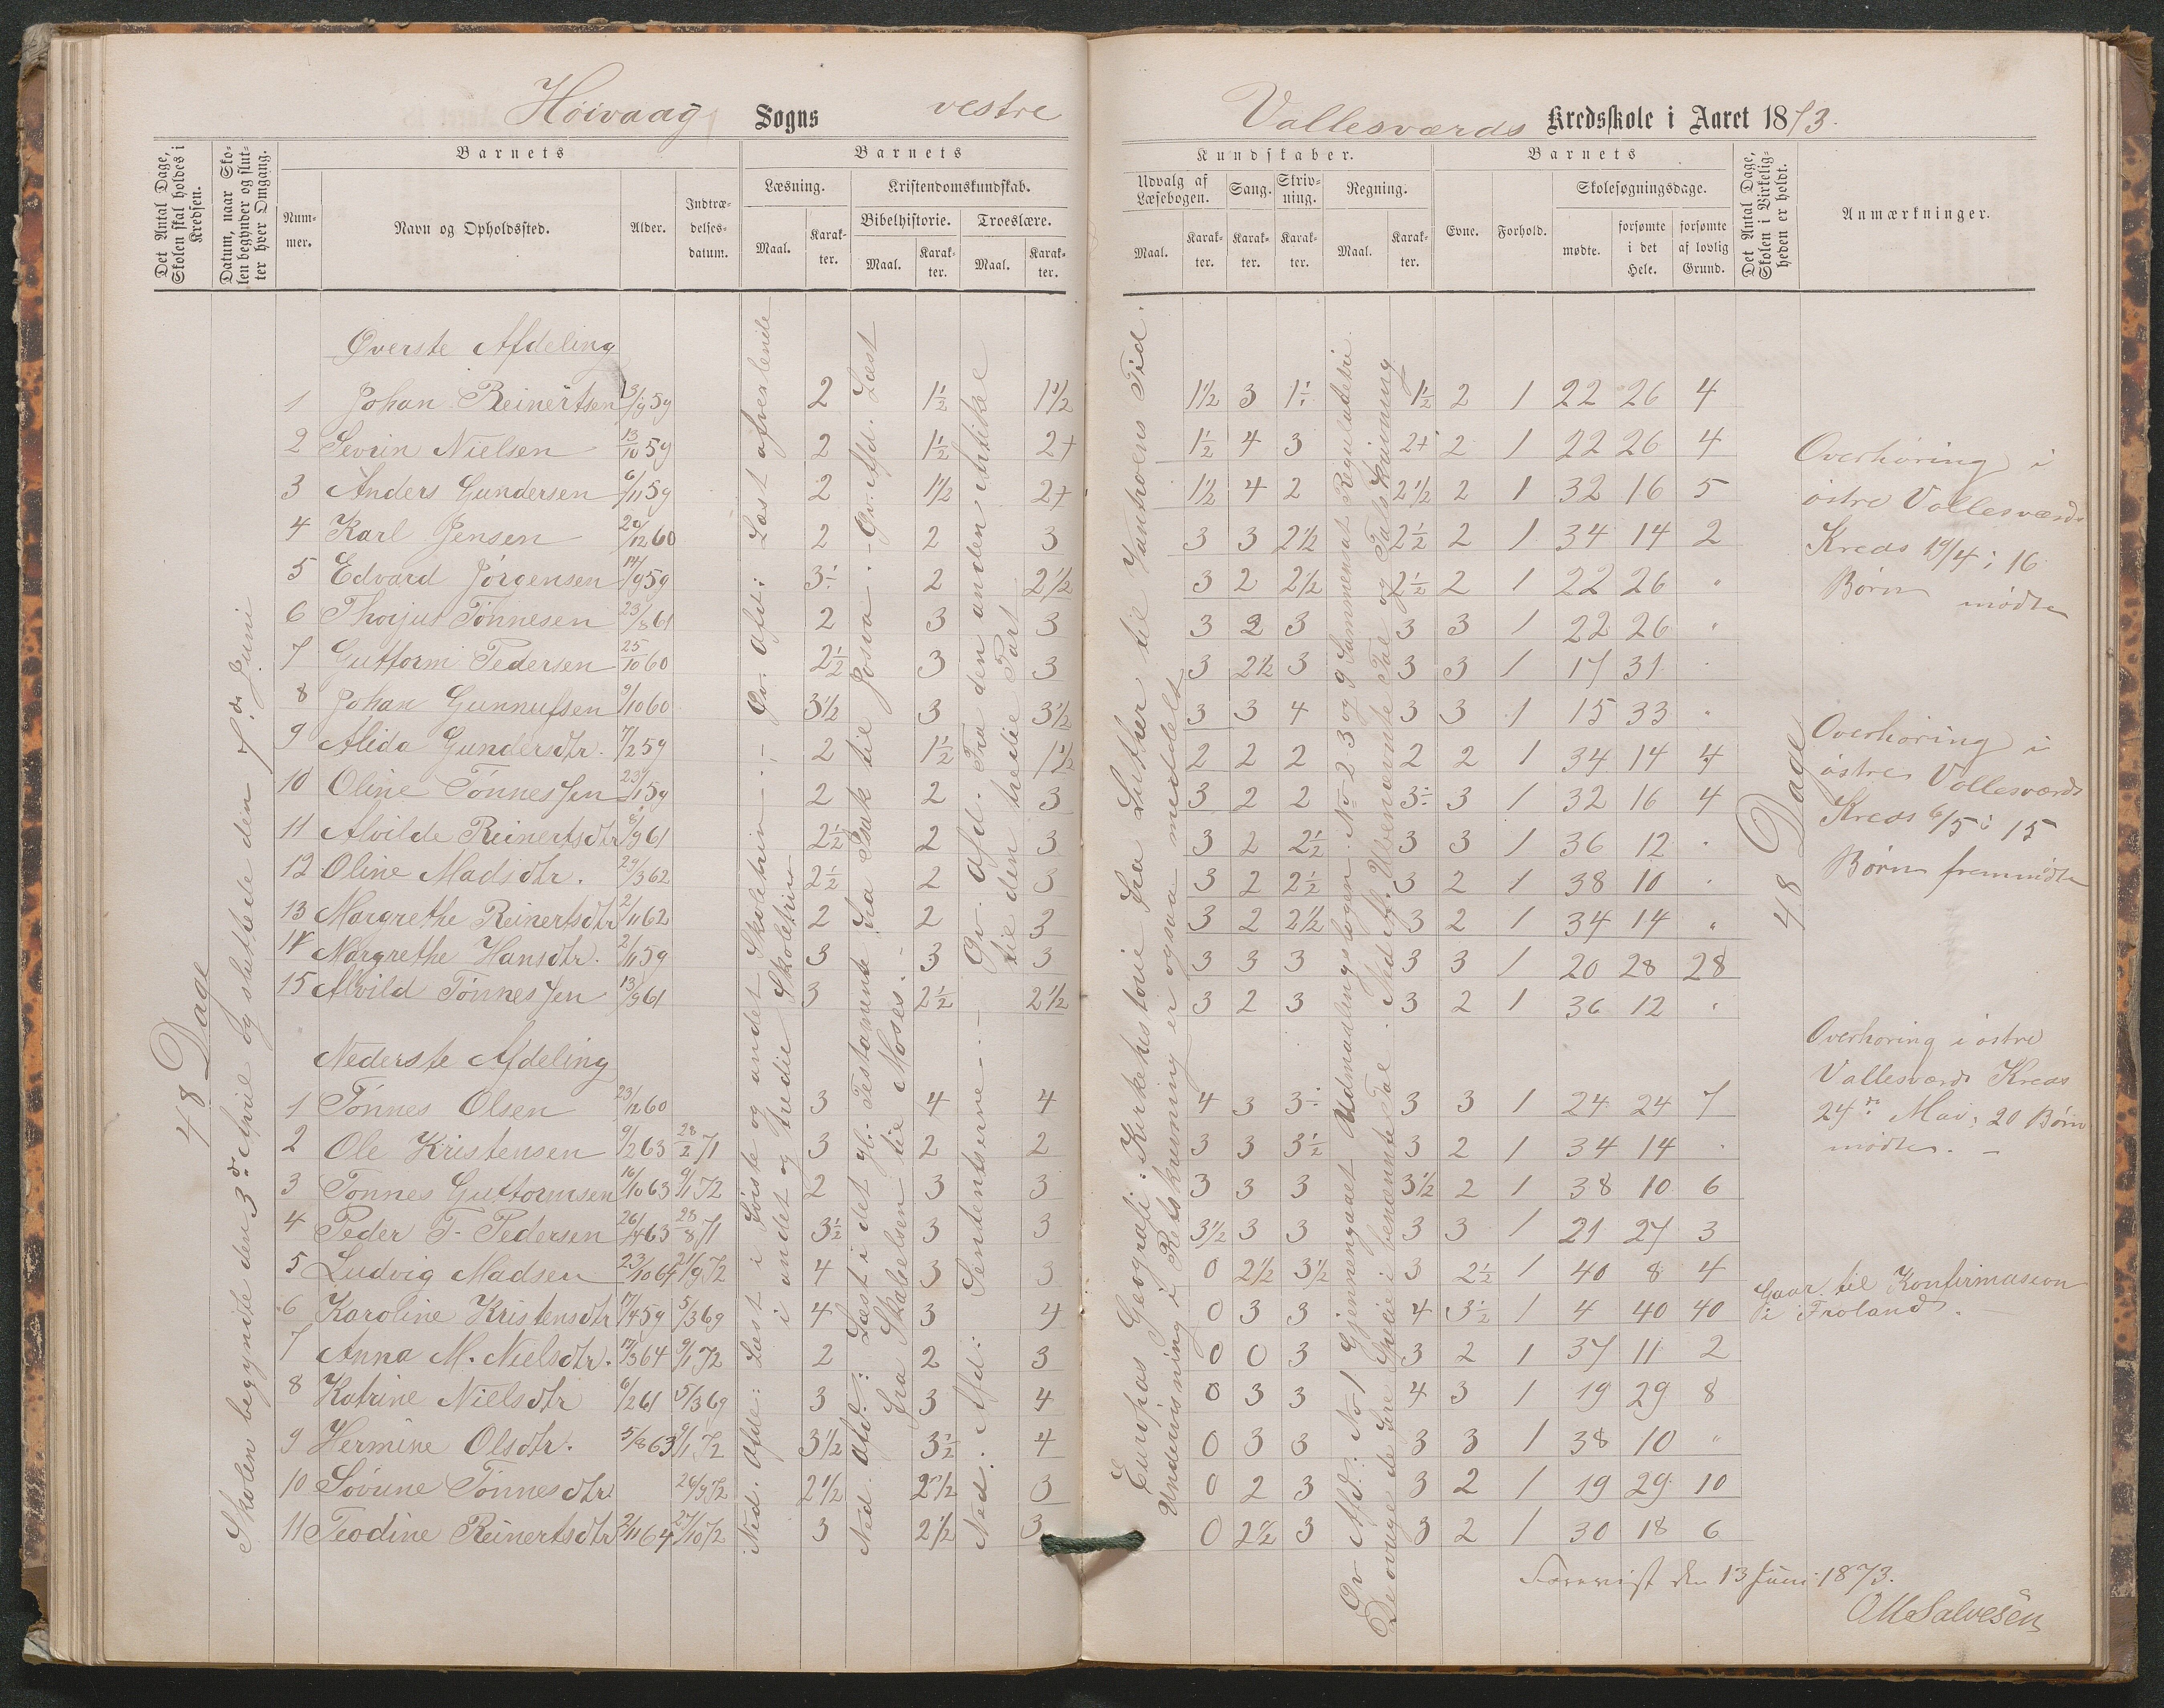 Höivaag Sogns vestre
Vallesværds Kredsskole i Aaret 1873.
Det Antal Dage, Skolen skal holdes i Kredsen.
Datum, naar Skolen begynder og slutter hver Omgang.
Barnets
Nummer.
Navn og Opholdssted.
Alder.
Indtrædelsesdatum.
Barnets
Læsning.
Kristendomskundskab.
Maal.
Karakter.
Bibelhistorie.
Troeslære.
Maal.
Karakter.
Maal.
Karakter.
Kundskaber.
Udvalg af Læsebogen.
Sang.
Skrivning.
Regning.
Maal.
Karakter.
Karakter.
Karakter.
Maal.
Karakter.
Barnets
Evne.
Forhold.
Skolesøgningsdage.
mødte.
forsømte i det Hele.
forsømte af lovlig Grund.
Det Antal Dage, Skolen i Virkeligheden er holdt.
Anmærkninger.
48 Dage
Skolen begyndte den 3de April og sluttede den 7de Juni
Øverste Afdeling
1 Johan Reinertsen 13/9 59 2 1½ 1½ 1½ 3 1÷ 1½ 2 1 22 26 4
2 Sevrin Nielsen 13/10 59 2 1½ 2+ 1½ 4 3 2+ 2 1 22 26 4
3 Anders Gundersen 6/11 59 2 1½ 2+ 1½ 4 2 2½ 2 1 32 16 5
4 Karl Jensen 20/12 60 2 2 3 3 3 2½ 2½ 2 1 34 14 2
5 Edvard Jörgensen 14/9 59 3÷ 2 2½ 3 2 2½ 2½ 2 1 22 26 "
6 Thorjus Tönnesen 23/8 61 2 3 3 3 2 3 3 3 1 22 26 "
7 Guttorm Pedersen 25/10 60 2½ 3 3 3 2½ 3 3 3 1 17 31 "
8 Johan Gunnufsen 9/10 60 3½ 3 3½ 3 3 4 3 3 1 15 33 "
9 Alida Gundersdtr. 7/2 59 2 1½ 1½ 2 2 2 2 2 1 34 14 4
10 Oline Tönnessen 23/1 59 2 2 3 3 2 2 3÷ 3 1 32 16 4
11 Alvilde Reinertsdtr 8/9 61 2½ 2 3 3 2 2½ 3 3 1 36 12 "
12 Oline Madsdtr. 29/3 62 2½ 2 3 3 2 2½ 3 2 1 38 10 "
13 Margrethe Reinertsdtr 2/11 62 2 2 3 3 2 2½ 3 2 1 34 14 "
14 Margrethe Hansdtr. 2/1 59 3 3 3 3 3 3 3 3 1 20 28 28
15 Alvild Tönnessen 13/9 61 3 2½ 2½ 3 2 3 3 2 1 36 12 "
Nederste Afdeling
1 Tönnes Olsen 23/12 60 3 4 4 4 3 3÷ 3 3 1 24 24 7
2 Ole Kristensen 9/2 63 28/2 71 3 2 2 3 3 3½ 3 2 1 34 14 "
3 Tönnes Guttormsen 16/10 63 9/1 72 2 3 3 3 3 3 3½ 2 1 38 10 6
4 Peder T. Pedersen 26/4 63 28/8 71 3½ 3 3 3½ 3 3 3 3 1 21 27 3
5 Ludvig Madsen 23/10 64 21/9 72 4 3 3 0 2½ 3½ 3 2½ 1 40 8 4
6 Karoline Kristensdtr 17/4 59 5/3 69 4 3 4 0 3 3 4 3½ 1 4 40 40
7 Anna M. Nielsdtr. 17/3 64 9/1 72 2 2 3 0 0 3 3 2 1 37 11 2
8 Katrine Nielsdtr 6/2 61 5/3 69 3 3 4 0 3 3 4 3 1 19 29 8
9 Hermine Olsdtr. 5/8 63 9/1 72 3½ 3½ 4 0 3 3 3 3 1 38 10 "
10 Sövine Tönnesdtr 26/9 72 2½ 2½ 3 0 2 3 3 2 1 19 29 10
11 Teodine Reinertsdtr 2/11 64 27/10 72 3 2½ 3 0 2½ 3 3 2 1 30 18 6
Ned. Afde: Læst i förste og andet Skoletrin – Öv. Afd: Læst afvexlende
i andet og tredie Skoletrin
Ned. Afd: Læst i det gl. Testamente fra Isak til Josva. – Öv. Afd. Læst
fra Skabelsen til Moses.
Ned. Afd: Sendentserne – Öv. Afd. Fra den anden Artikel
til den tredie Part
Europas Geografi: Kirkehistorie fra Luther til Vantroens Tid.
Undervisning i Retskrivning er ogsaa meddelt
Öv Afd: No 1 Gjennengaaet Udmaalingslogen. No 2 3 og 9 Sammensat Regulatetri.
De övrige de fire Specie i benævnte Tal. Ned Af. Ubenævnte Tal og Talskrivning
48 Dage
Overhöring i
östre Vallesværds
Kreds 19/4: 16
Börn mödte
Overhöring i
östre Vallesværds
Kreds 6/5: 15
Börn fremmödte
Overhöring i östre
Vallesværds Kreds
24de Mai: 20 Börn
mödte. –
Gaar til Konfirmasion
i Froland.
Forevist den 13 Juni 1873.
O M Salvesen